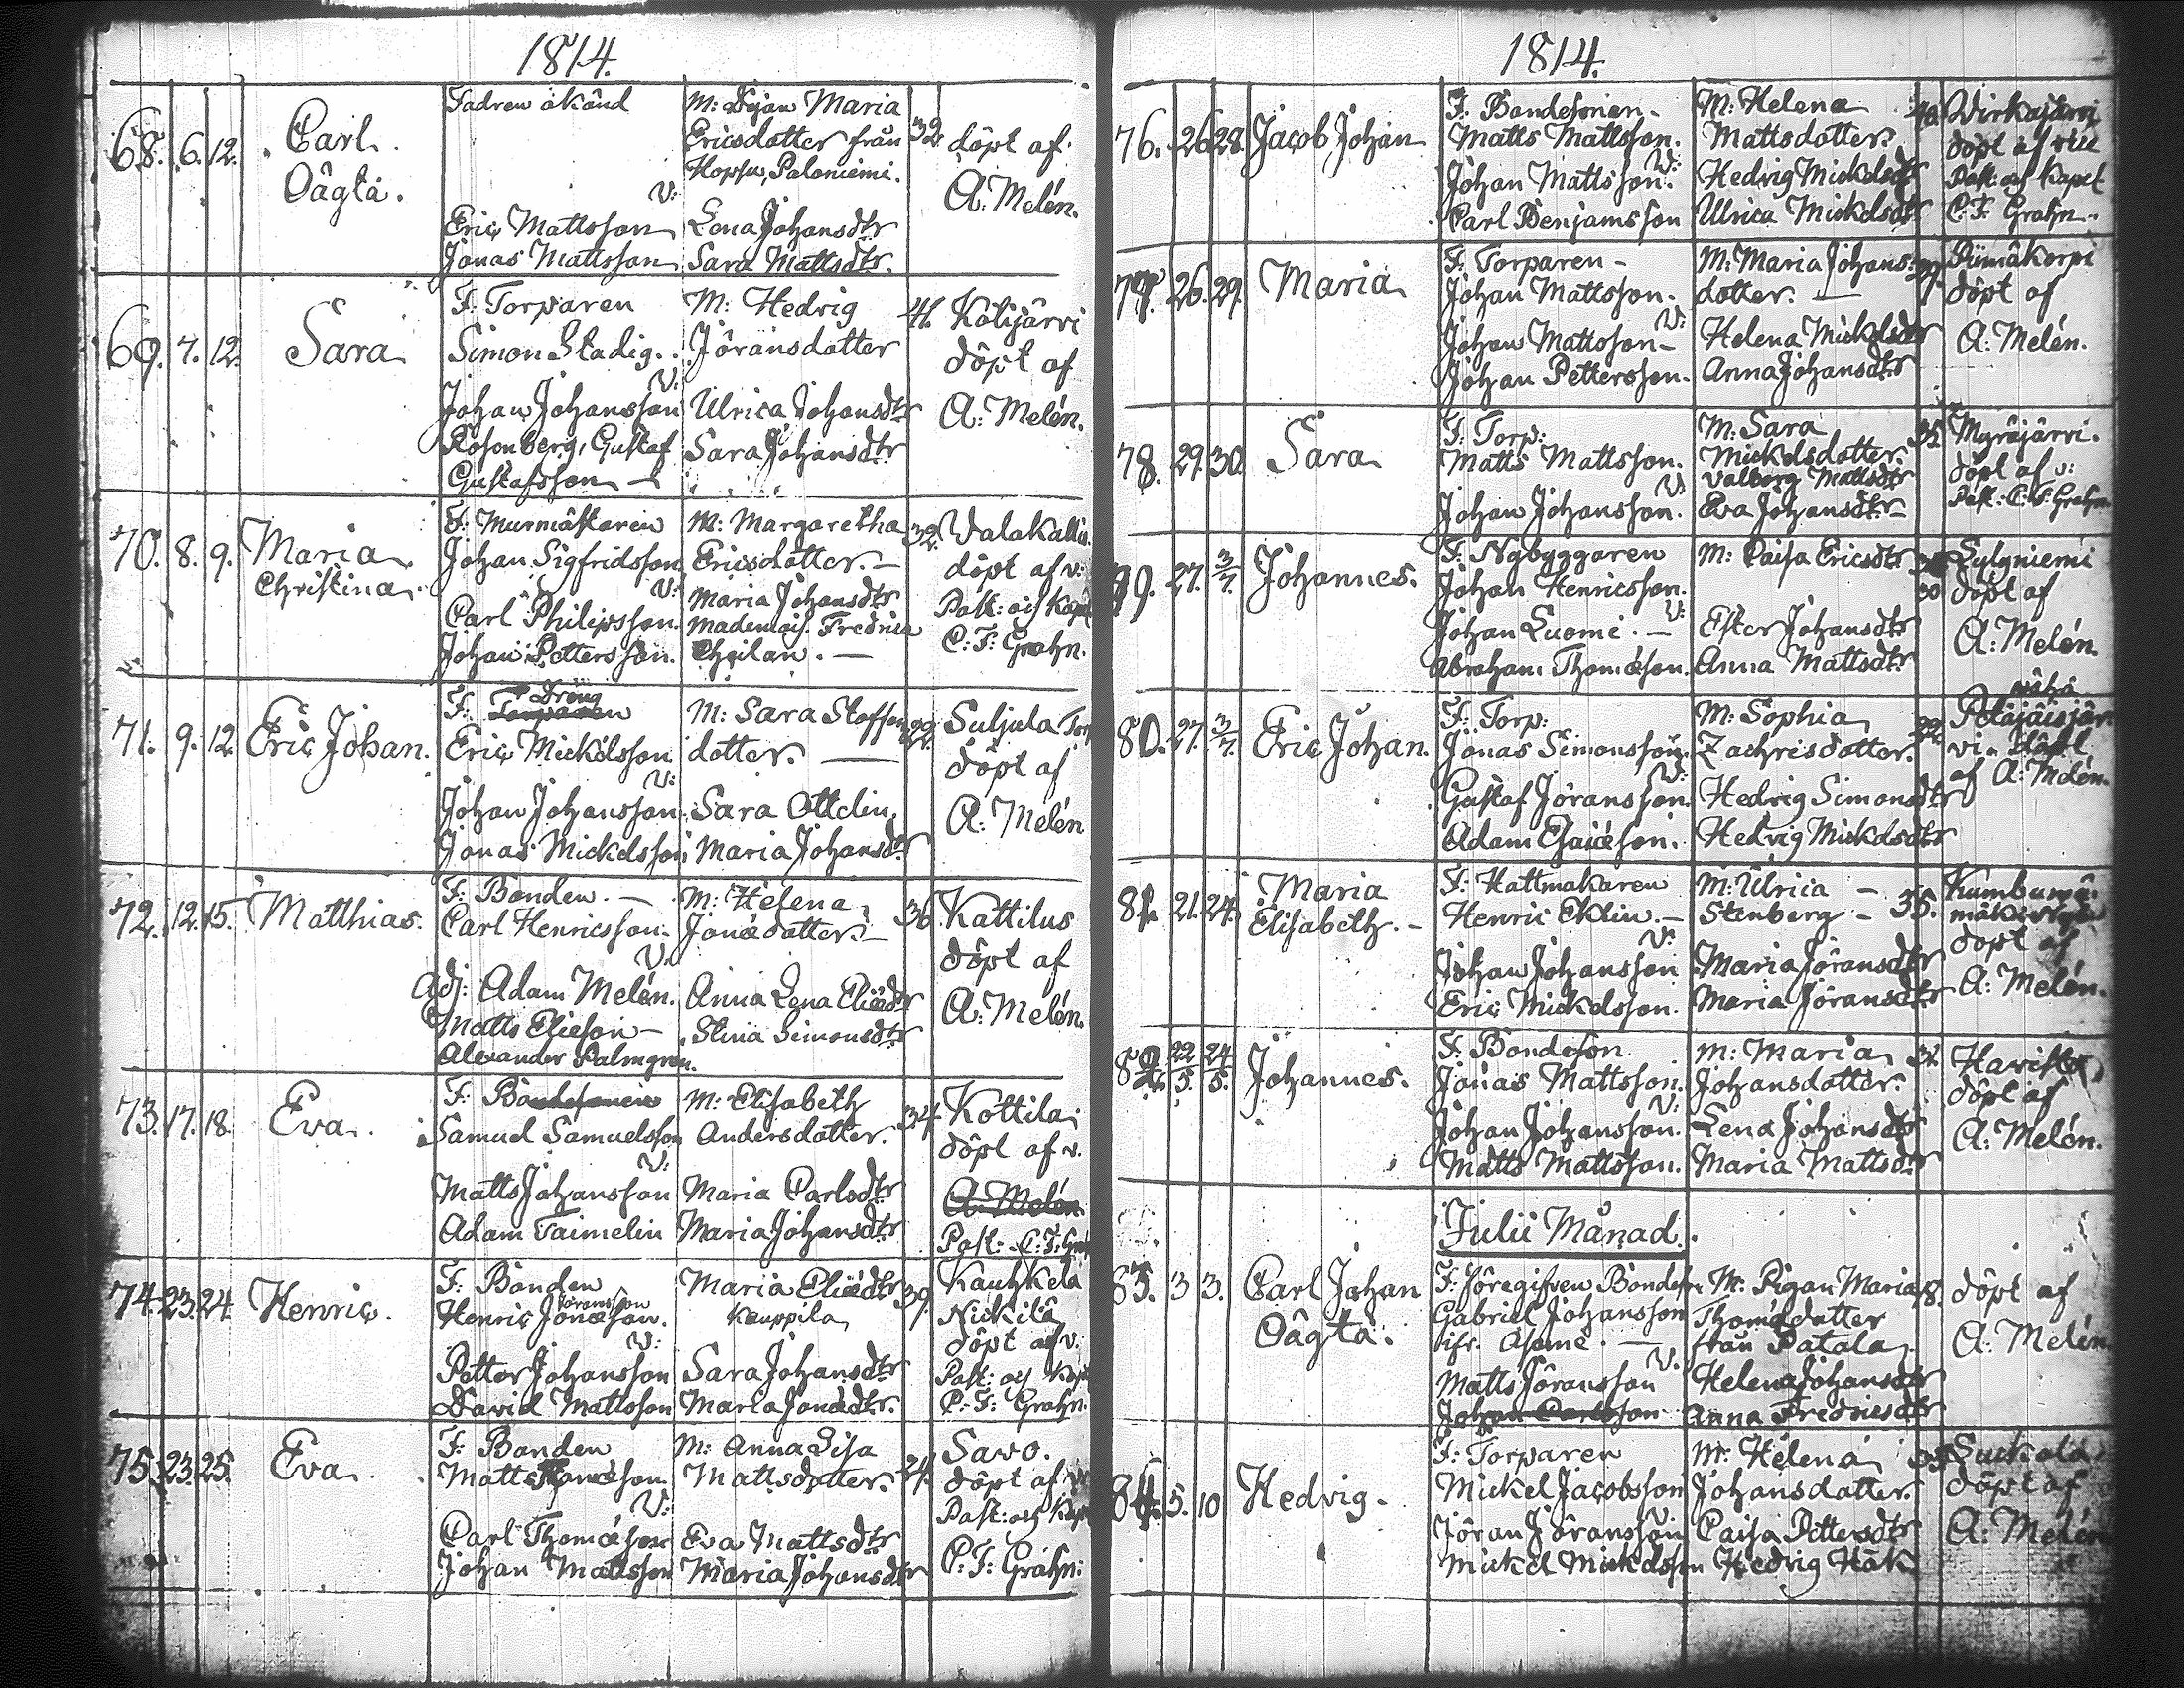 1814.
68. 6. 12. Carl Oägta.
Fadren okänd
M: Pigan Maria
Ericsdotter från
Hopsu, Paloniemi.
V:
Eric Mattsson Lena Johansdtr
Jonas Mattsson Sara Mattsdtr.
32 döpt af
A: Melén.
69. 7. 12. Sara
F: Torparen M: Hedvig
Simon Stadig. Jöransdotter
V:
Johan Johansson Ulrica Johansdtr
Rosenberg, Gustaf Sara Johansdtr
Gustafsson
41. Kolijärvi
döpt af
A: Melén.
70. 8. 9. Maria Christina
F: Murmästaren M: Margaretha
Johan Sigfridsson Ericsdotter.
V: Maria Johansdtr
Carl Philipsson. Mademois. Fredrica
Johan Pettersson.
32. Valakallio
döpt af v:
Past: och Kapel
C: F: Grahn.
71. 9. 12. Eric Johan.
F: Dräng M: Sara Stoffers
Eric Mickelsson dotter.
V:
Johan Johansson Sara Ottelin
Jonas Mickelsson Maria Johansdtr
22. Suljula Torp
döpt af
A: Melén
72. 12. 15. Matthias.
F: Bonden. M: Helena
Carl Henricsson. Jonædotter.
V:
Adj: Adam Melén. Anna Lena Eliædtr
Matts Elieson Stina Simonsdtr
Alexander Palmgren.
36 Kattilus
döpt af
A: Melén.
73. 17. 18. Eva.
F: Bondesonen M: Elisabeth
Samuel Samuelsson Andersdotter.
V:
Matts Johansson Maria Carlsdtr
Adam Taimelin Maria Johansdtr
34 Kottila
döpt af v.
A: Melén
Past: C: F: Grah
74. 23. 24. Henric.
F: Bonden Maria Eliædtr
Jöransson
Henric Jonæson. Kauppila
V:
Petter Johansson Sara Johansdtr
David Mattsson Maria Jonædtr.
39. Kauhkela
Nickilä
döpt af v:
Past: och Kapel
C: F: Grahn.
75. 23. 25. Eva
F: Bonden M: Anna Lisa
Matts Thomæson. Mattsdotter.
V:
Carl Thomæson Eva Mattsdtr
Johan Mattsson Maria Johansdtr
24. Savo.
döpt af v:
Past: och Kapel
C: F: Grahn:
1814.
76. 26. 28. Jacob Johan
F: Bondesonen M: Helena
Matts Mattsson. Mattsdotter.
V:
Johan Mattsson. Hedvig Mickelsdtr
Carl Benjamsson Ulrica Mickelsdtr
Wirkajärvi
döpt af vice
Past: och Kapel
C: F: Grahn.
77. 26. 29. Maria
F: Torparen M: Maria Johans
Johan Mattsson. dotter.
V:
Johan Mattsson Helena Mickelsdtr
Johan Pettersson. Anna Johansdtr
döpt af
A: Melén.
78. 29. 30. Sara
F: Torp: M: Sara
Matts Mattsson. Mickelsdotter.
V: Valborg Mattsdtr
Johan Johansson. Eva Johansdtr
35 Myräjärvi.
döpt af v:
Past: C: F: Grahn
79. 27. 3/7. Johannes.
F: Nybyggaren M: Caisa Ericsdtr
Johan Henricsson.
V:
Johan Luomi. Ester Johansdtr
Abraham Thomæson. Anna Mattsdtr
Sylyniemi
döpt af
A: Melén.
80. 27. 3/7. Eric Johan.
F: Torp: M: Sophia
Jonas Simonsson. Zachrisdotter.
V:
Gustaf Jöransson. Hedvig Simonsdtr
Adam Esaiæson. Hedvig Mickelsdtr
wähä
Petäjäisjär
vi. döpt
af A: Melén.
81. 21. 24. Maria Elisabeth.
F: Hattmakaren M: Ulrica
Henric Eklin. Stenberg
V:
Johan Johansson Maria Jöransdtr
Eric Mickelsson. Maria Jöransdtr
35.
döpt af
A: Melén.
82. 22/5. 24/5. Johannes.
F: Bondeson. M: Maria
Jonas Mattsson. Johansdotter.
V:
Johan Johansson. Lena Johansdtr
Matts Mattsson. Maria Mattsdr
Haristo
döpt af
A: Melén.
Julii Månad.
83. 3 3. Carl Johan Oägta.
F: Föregifven Bondeson M: Pigan Maria
Gabriel Johansson Thomædotter
från Patala
V:
Matts Jöransson Helena Johansdtr
Johan Carlsson Anna Fredricsdtr
döpt af
A: Melén
84. 5. 10 Hedvig.
F: Torparen M: Helena
Mickel Jacobsson Johansdotter.
V:
Jöran Jöransson Caisa Pettersdtr
Mickel Mickelsson Hedvig Hök
Suckola
döpt af
A: Melén